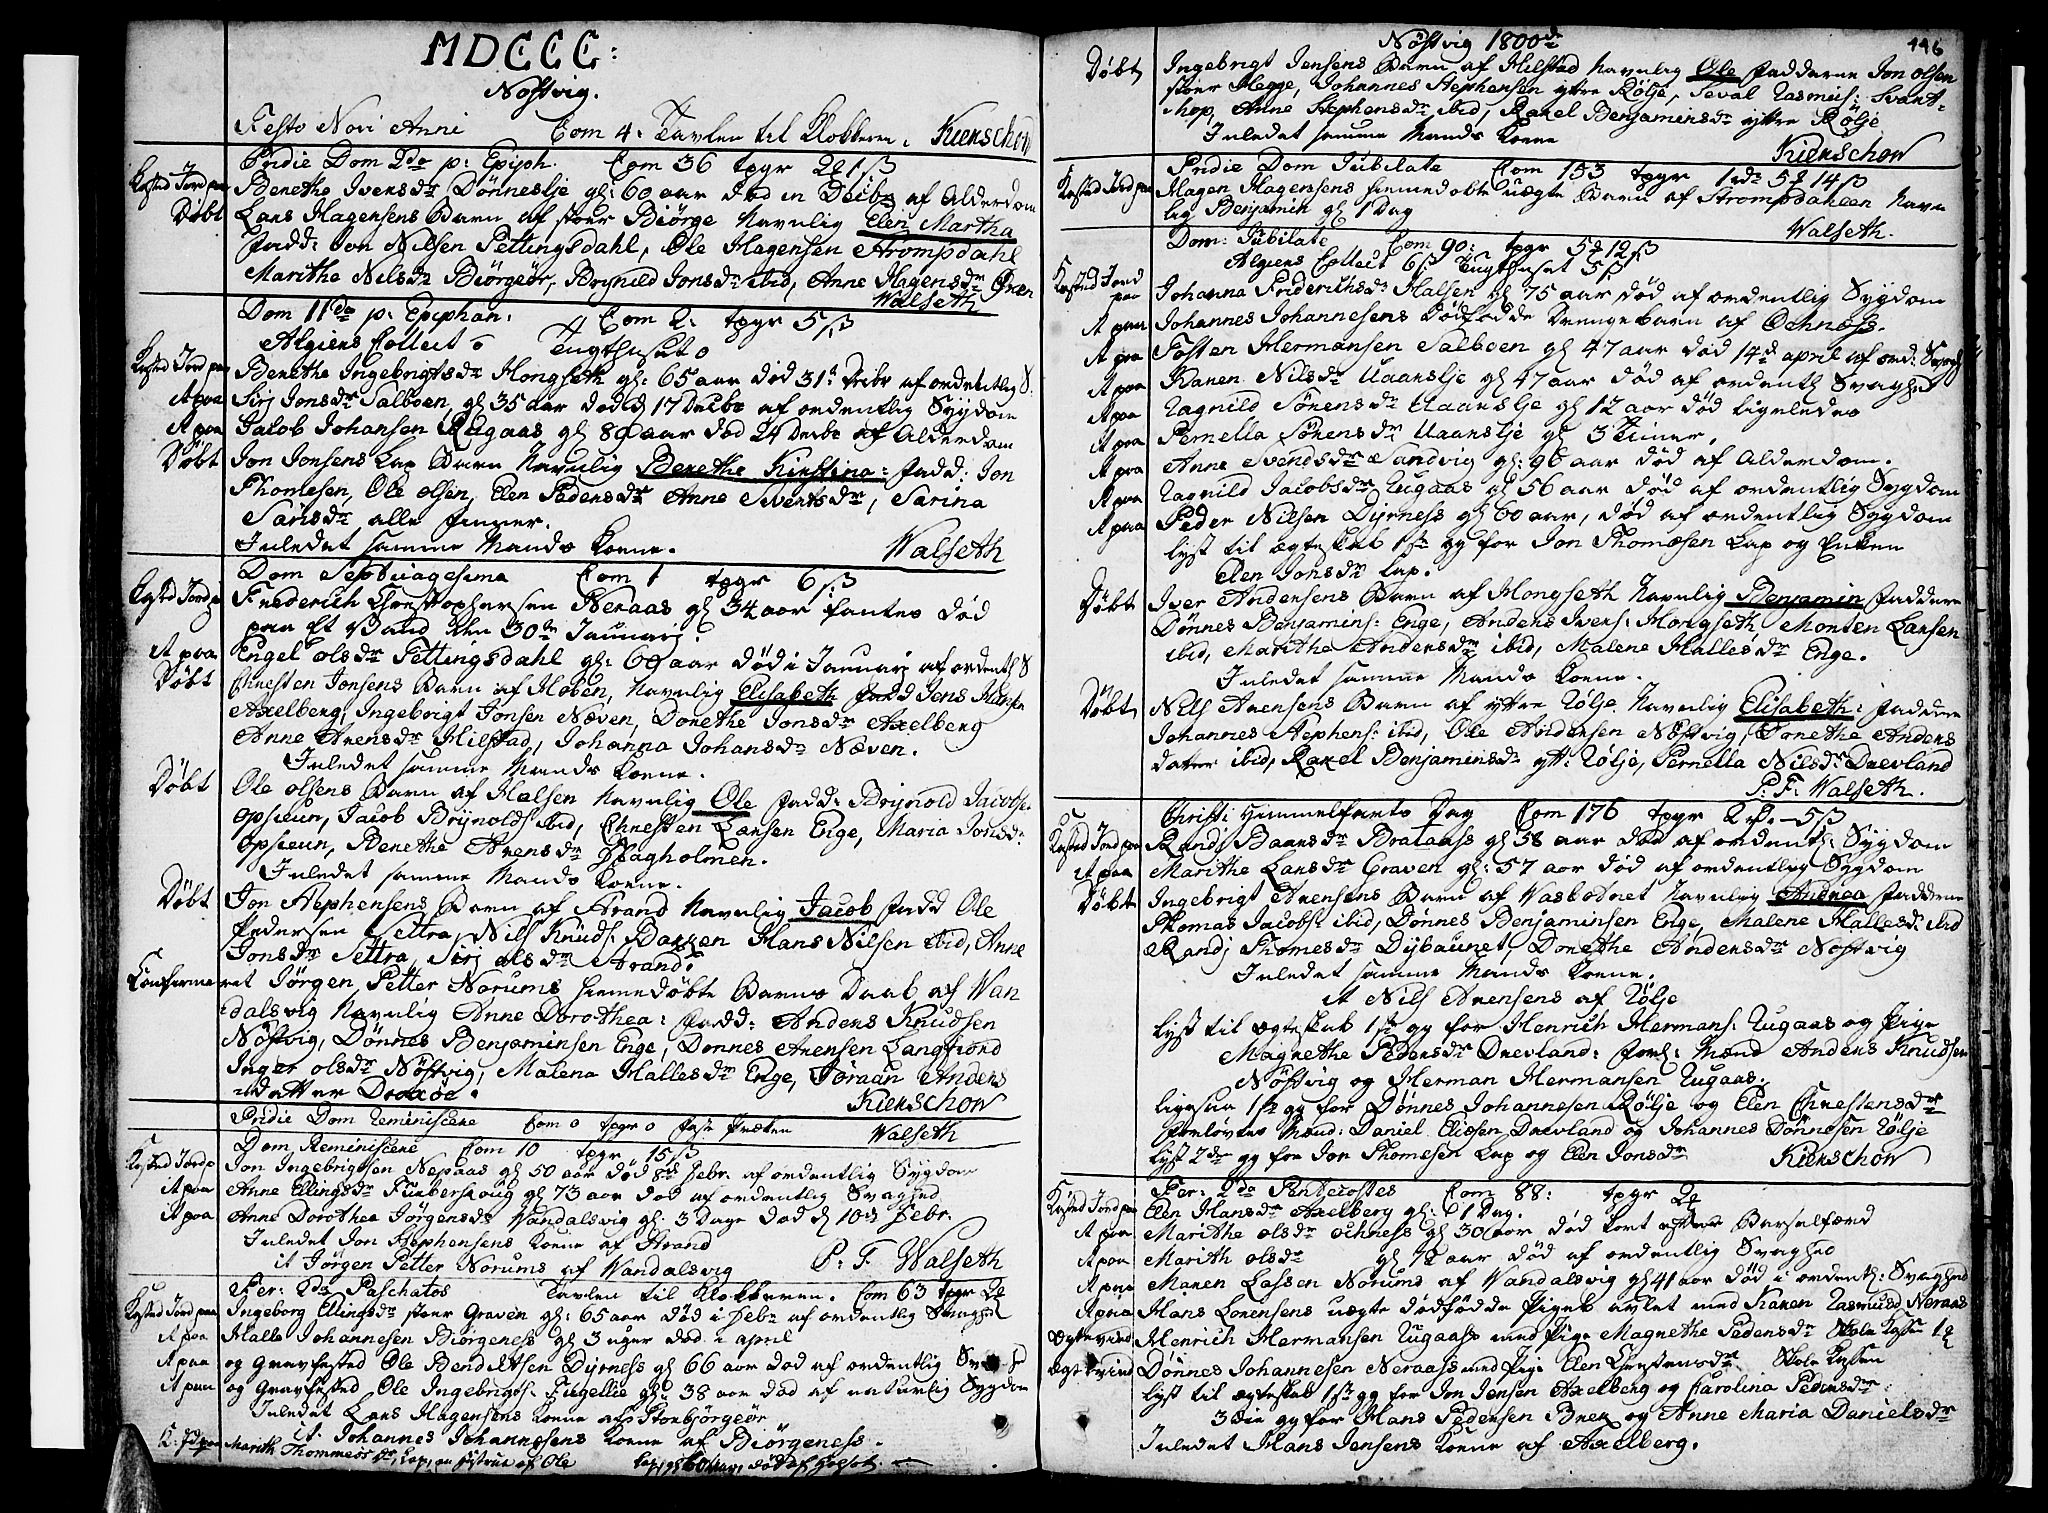 MDCCC:
Nøstvig.
Festo Novi Anni Com 4: Tavlen til Klokkeren. Kierschow
Pridie Dom 2da p: Epiph. Com 36 tpgr
Kasted Jord paa Benethe Ivers dr Dønneslje gl: 60 aar død in Decbr af Alderdom
Døbt Lars Hagensens Barn af stoer Biørge Navnlig Elen Martha
Fadd: Jon Nilsen Fettingsdahl, Ole Hagensen Strompdahl
Marithe Nils dr Biørgeør, Brynild Jons dr ibid, Anne Hagens dr Øren
Walseth
Dom 11da p: Epiphan: Com 2: tpgr 5 ß
Algiers Collect 0 Tugthuset 0
Kasted Jord paa Benethe Ingebrigts dr Hongseth gl: 65 aar død 31d Decbr af ordentlig S.
It paa Siri Jons dr Salboen, gl 35 aar død d 17 Decbr af ordentlig Sygdom
It paa Jacob Johansen Rugaas gl 80 aar død 24 Decbr af Alderdom
Døbt Jon Jonsens Lap Barn Navnlig Benethe Kirstina: Fadd: Jon
Thomesen, Ole Olsen, Elen Peders dr Anne Siverts dr, Sarina
Sairis dr alle Finner.
Inledet samme Mands Kone. Walseth
Dom Septuagesima Com 1 tpgr 6 ß
Kasted Jord p Friderich Christophersen Neraas gl 34 aar fantes død
paa Et Vand den 30te Januarj.
It paa Engel Ols dr Fettingsdahl gl: 60 aar død i Januarj af ordentl S
Døbt Chresten Jonsens Barn af Hoben, Navnlig Elisabeth Fadd Jens Hansen
Axelberg, Ingebrigt Jonsen Næven, Dorethe Jons dr Axelberg
Anne Arens dr Hilstad, Johanna Johans dr Næven.
Inledet samme Mands Kone.
Døbt Ole Olsens Barn af Halsen Navnlig Ole Fadd: Brynold Jacobs.
Opsieun, Jacob Brynolds ibid, Chresten Larsen Enge, Maria Jons dr
Opsieun, Benethe Arens dr Skagholmen.
Inledet samme Mands Kone.
Døbt Jon Stephensens Barn af Strand Navnlig Jacob Fadd Ole
Pedersen Settra, Nils Knuds: Bakken Hans Nilsen ibid, Anne
Jons dr Settra, Siri Ols dr Strand.
Confirmeret Jørgen Petter Norums Hiemedøbte Barns Daab af Van
dalsvig Navnlig Anne Dorothea: Fadd: Anders Knudsen
Nøstvig, Dønnes Benjaminsen Enge, Dønnes Arensen Langfiord
Inger Ols dr Nøstvig, Malena Halles dr Enge, Joraan Anders
datter Draxøe. Kierschow
Pridie Dom Reminiscere Com 0 tpgr 0 Walseth
Dom Reminiscere Com 10 tpgr 15 ß
Kasted Jord p Jon Ingebrigtsen Nepaas gl 50 aar død 8d Febr. af ordentlig Sygdom
it paa Anne Ellings dr Finberskoug gl 73 aar død af ordentlig Svaghed
it paa Anne Dorothea Jørgens dr Vandalsvig gl: 3 Dage død d 10d Febr.
Inledet Jon Stephensens Kone af Strand
it Jørgen Petter Norums af Vandalsvig P. F. Walseth
Fer: 2da Paschatos Tavlen til Klokkeren. Com 63 tpgr
Kasted Jord paa Ingeborg Ellings dr stoer Graven gl: 65 aar død i Febr af ordentlig Svaghed
It paa Halle Johannesen Biørgeness gl 3 uger død i April
It paa og Gravfested Ole Bendeltsen Dyrness gl 66 aar død af ordentlig Svaghed
it paa og Gravfested Ole Ingebrigts: Fugellie gl: 38 aar død af naturlig Sygdom
Inledet Lars Hagensens Kone af Storbjørgeør
it Johannes Johannesens Kone af Biørgeness.
K: Jd paa Marith Thommes dr, Lap,
Nøstvig 1800de 446
Døbt Ingebrigt Jensens Barn af Hilstad Navnlig Ole Fadderne Jon Olsen
stoer Hegge, Johannes Stephensen yttre Rølje, Seval Rasmus: Svart
hop, Anne Stephens dr ibid, Raxel Benjamins dr yttre Rølje
Inledet samme Mands Kone Kierschow
Pridie Dom Jubilate Com 153 tpgr 1 rd 5 14 ß
Kasted Jord paa Hagen Hagensens hiemedøbte uægte Barn af Strompdahlen Navn
lig Benjamin gl 1 Dag Walseth.
Dom: Jubilate Com 90: tpgr 5 12 ß
Algiers Collect 6 ß Tugthuset 5 ß
Kasted Jord paa Johanna Friderichs dr Halsen gl 75 aar død af ordentlig Sygdom
It paa Johannes Johannesens Dødfødde Drengebarn af Ochness.
It paa Tosten Hermansen Salboen gl 47 aar død 14d April af ord: Svagh
It paa Karen Nils dr Uaanslje gl 47 aar død af ordentl Svaghed
It paa Ragnild Sørens dr Uaanslje gl 12 aar død ligeledes
It paa Pernella Sørens dr Uaanslje gl 3 Timer.
It paa Anne Svends dr Sandvig gl: 96 aar død af Alderdom.
It paa Ragnild Jacobs dr Rugaas gl 56 aar død af ordentlig Sygdom
It paa Peder Nilsen Dyrness gl 60 aar, død af ordentlig Sygdom
lyst til ægteskab 1ste gg for Jon Thomesen Lap og Enken
Elen Jons dr Lap.
Døbt Iver Andersens Barn af Hongseth Navnlig Benjamin Faddere
Dønnes Benjamins: Enge, Anders Ivers: Hongseth Morten Larsen
ibid, Marithe Anders dr ibid, Malene Halles dr Enge.
Inledet samme Mands Kone.
Døbt Nils Arensens Barn af yttre Rølje Navnlig Elisabeth: Faddere
Johannes Stephens: ibid, Ole Andersen Nøstvig, Dorethe Anders
datter ibid, Raxel Benjamins dr ytt: Rølje, Pernella Nils dr Drevland
P: F: Walseth.
Christi Himmelfarts Dag Com 176 tpgr
Kasted Jord paa Randj Baars dr Brataass gl 58 aar død af ordentl: Sygdom
it paa Marithe Lars dr Graven gl: 57 aar død af ordentlig Sygdom
Døbt Ingebrigt Arensens Barn af Vasbotnet Navnlig Andrea Fadderne
Thomas Jacobs: ibid, Dønnes Benjaminsen Enge, Malene Halles dr ibid
Randj Thomes dr Dybaunet, Dorethe Anders dr Nøstvig
Inledet samme Mands Kone.
it Nils Arensens af Rølje
lyst til ægteskab 1ste gg for Henrich Hermans: Rugaas og Pige
Magrethe Peders dr Drevland: Forl: Mænd Anders Knudsen
Nøstvig og Herman Hermansen Rugaas.
ligesaa 1ste gg for Dønnes Johannesen Rølje og Elen Chrestens dr
Forlovtes Mænd: Daniel Elissen Drevland og Johannes Dønnesen Rølje
lyst 2de gg for Jon Thomesen Lap og Elen Jons dr Kierschow
Fer: 2da Pentecostes Com 88: tpgr
Kasted Jord paa Elen Hans dr Axelberg gl: 1 Dag.
It paa Marithe Ols dr Ochness gl 30 aar død kort efter Barselfærd
It paa Marith Ols dr gl 72 aar død af ordentlig Svaghed
It paa Maren Lassen Norums af Vandalsvig gl 41 aar død i ordentl: Svaghed
It paa Hans Lorensens uægte dødfødde Pigeb avlet med Karen Rasmusd Neraas
Ægtevied Henrich Hermansen Rugaass med Pige Magrethe Peders dr Skole Kassen
Ægteviet Dønnes Johannesen Neraass med Pige Elen Chrestens dr. Skole Kassen
lyst til ægteskab 1ste gg for Jon Jensen Axelberg og Carolina Peders dr:
3die gg for Hans Pedersen Brek og Anne Maria Daniels dr
Inledet Hans Jensens Kone af Axelberg.